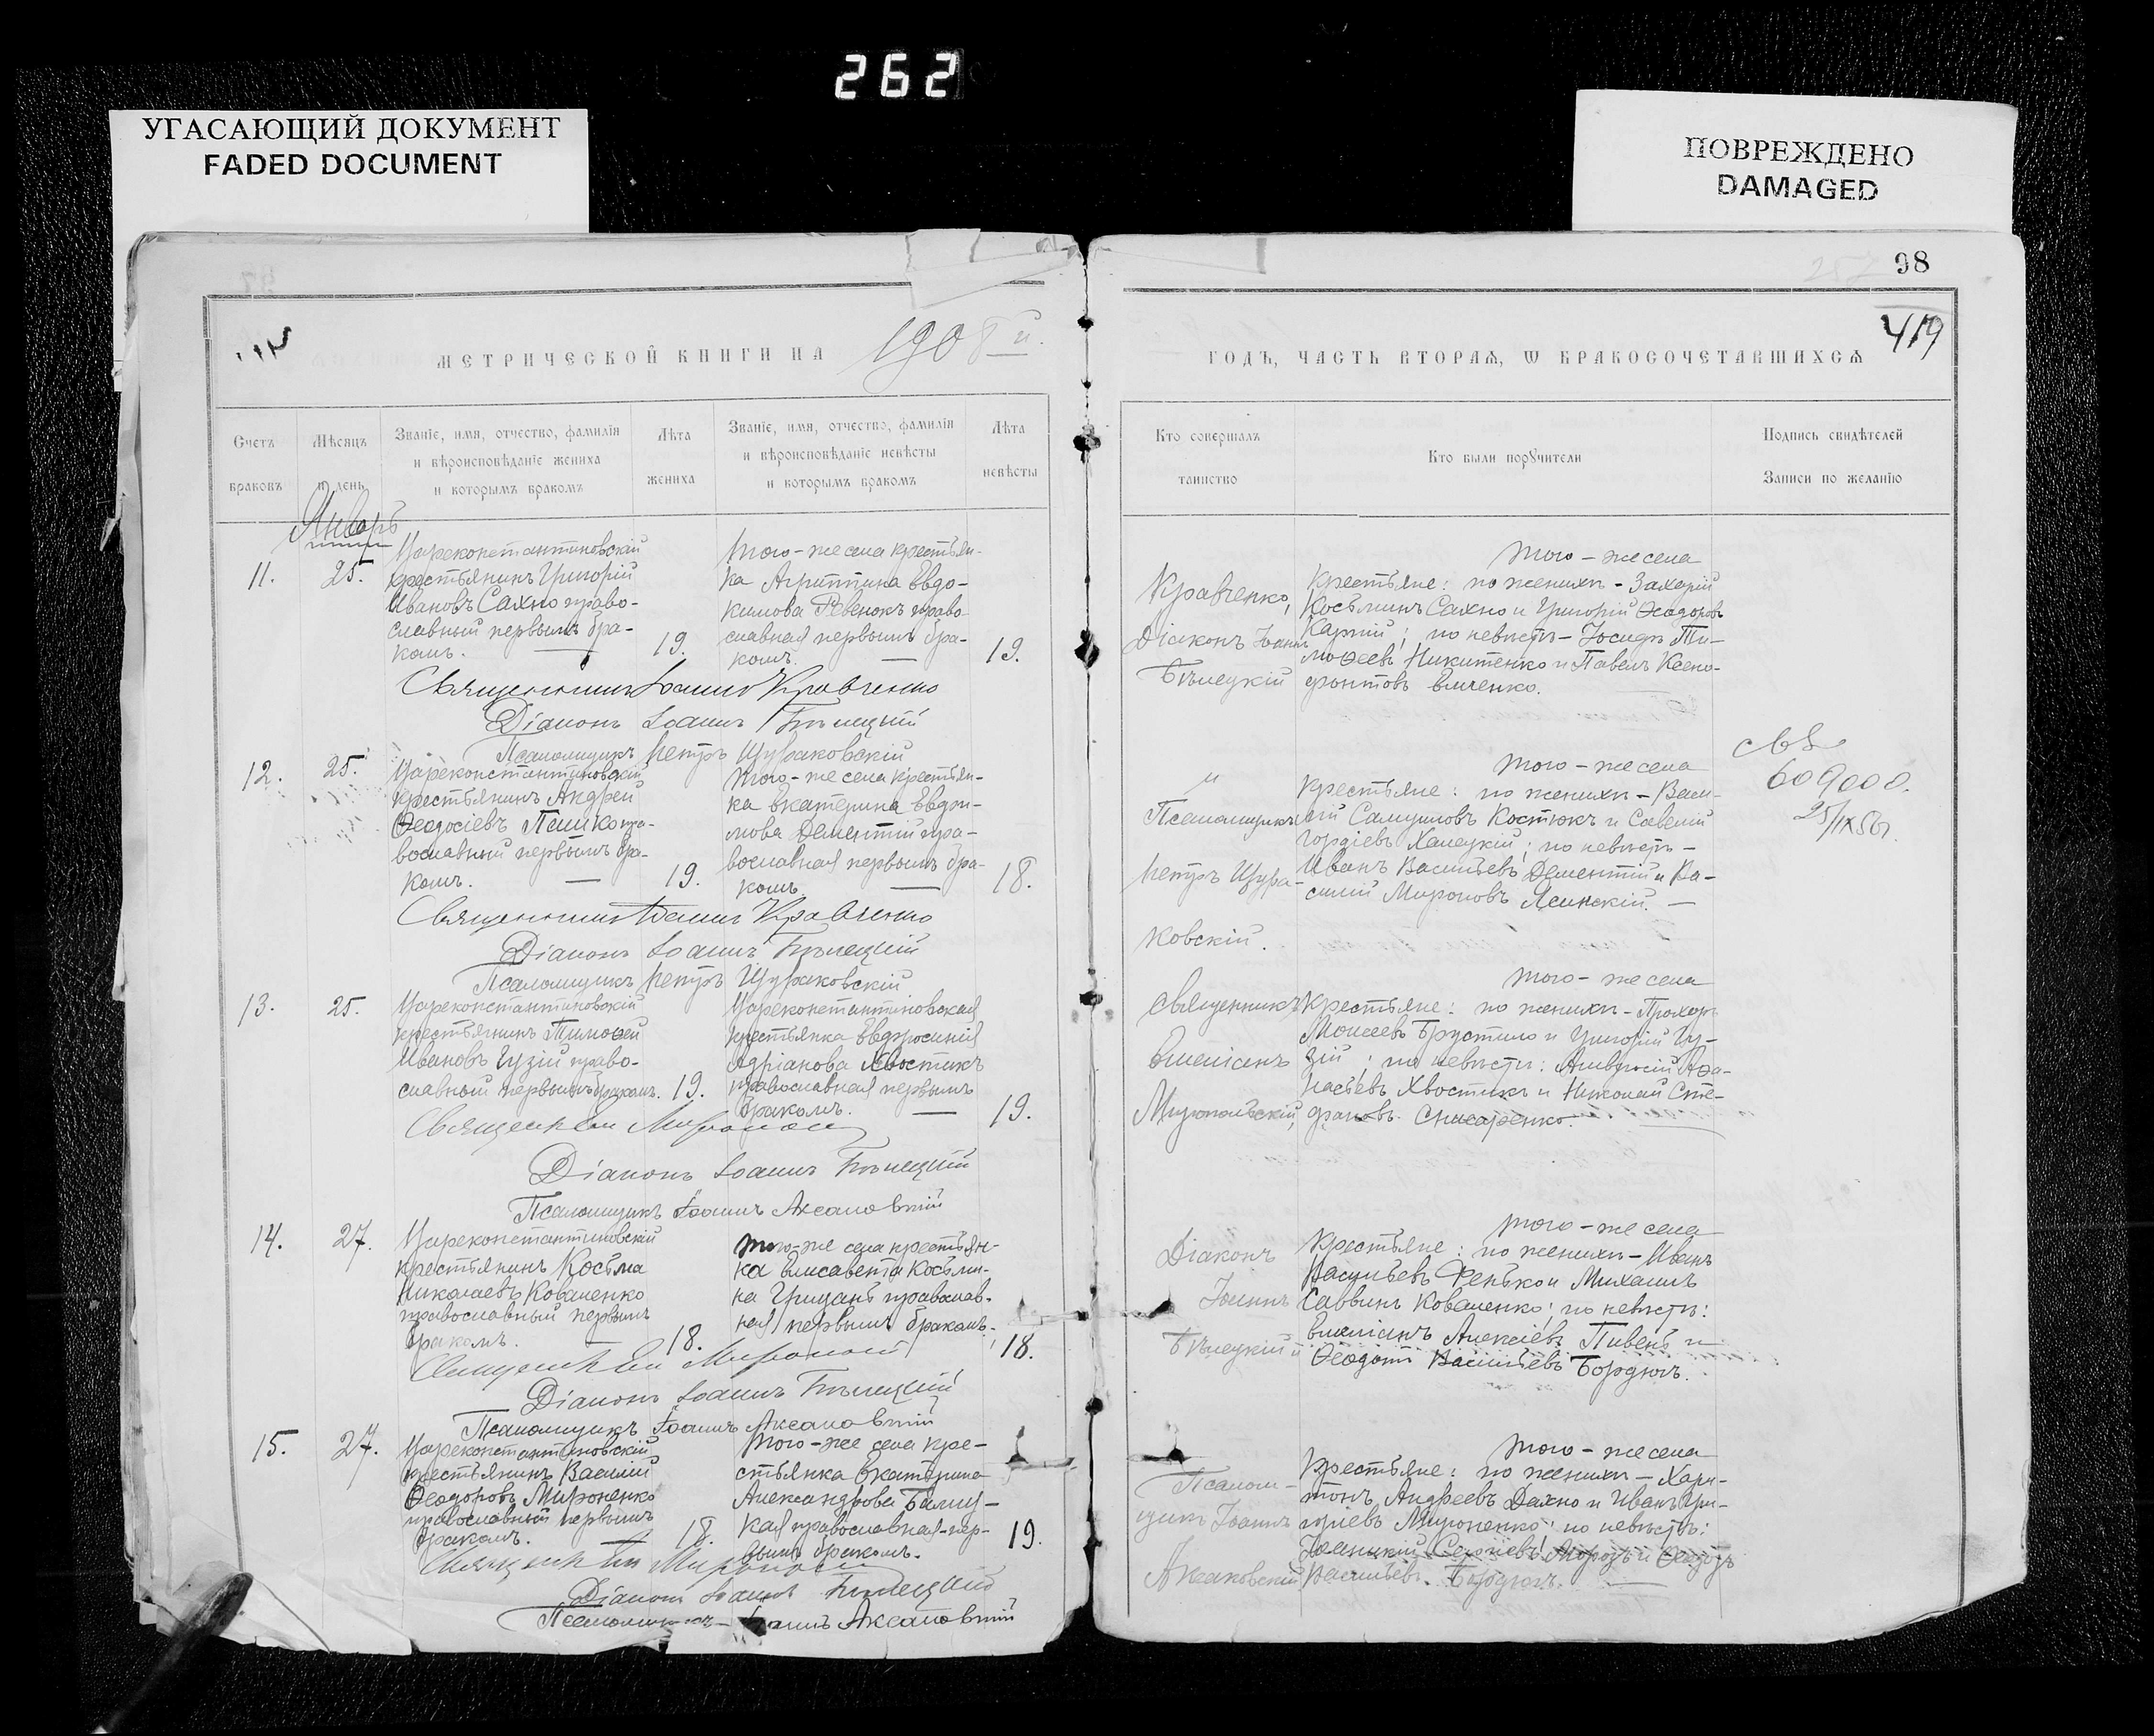 262
УГАСАЮЩИЙ ДОКУМЕНТ
FADED DOCUMENT
ПОВРЕЖДЕНО
DAMAGED
98
419
МЕТРИЧЕСКОЙ КНИГИ НА 1908 й.
ГОДЪ, ЧАСТЬ ВТОРАЯ, Ѡ БРАКОСОЧЕТАВШИХСѦ
Счетъ
браковъ
Мѣсяцъ
и день
Званіе, имя, отчество, фамилія
и вѣроисповѣданіе жениха
и которымъ бракомъ
Лѣта
жениха
Званіе, имя, отчество, фамилія
и вѣроисповѣданіе невѣсты
и которымъ бракомъ
Лѣта
невѣсты
Кто совершалъ
таинство
Кто были порꙋчители
Подпись свидѣтелей
Записи по желанію
Январь
11.
25.
Цареконстантиновскій
крестьянинъ Григорій
Ивановъ Сахно право-
славный первымъ бра-
комъ.
19.
того-же села крестьян-
ка Агриппина Евдо-
кимова Ревенокъ право-
славная первымъ бра-
комъ.
19.
Кравченко,
Діаконъ Іоаннъ
Бѣлецкій
того-же села
крестьяне: по женихѣ - Захарій
Косьминъ Сахно и Григорій Ѳеодоровъ
; по невѣстѣ - Іосифъ Ти-
моѳеевъ Никитенко и Павелъ Ксено-
фонтовъ
Священникъ Іоаннъ Кравченко
Діаконъ Іоаннъ Бѣлецкій
Псаломщикъ Петръ Щураковскій
12.
25.
Цареконстантиновскій
крестьянинъ Андрей
Ѳеодосіевъ Пашко пра-
вославный первымъ бра-
комъ.
19.
того-же села крестьян-
ка Екатерина Евфи-
мова Дементій пра-
вославная первымъ бра-
комъ.
18.
и
Псаломщикъ
Петръ Щура-
ковскій.
того-же села
крестьяне: по женихѣ - Васи-
лій Самуиловъ Костюкъ и Савелій
Гордіевъ ; по невѣстѣ -
Иванъ Васильевъ Дементій и Ва-
силій Мироновъ Ясинскій.
609000.
25/IX 56
Священникъ Іоаннъ Кравченко
Діаконъ Іоаннъ Бѣлецкій
Псаломщикъ Петръ Щураковскій
13.
25.
Цареконстантиновскій
крестьянинъ Тимоѳей
Ивановъ Гузій право-
славный первымъ бракомъ.
19.
Цареконстантиновская
крестьянка Евфросинія
Адріанова Хвостикъ
православная первымъ
бракомъ.
19.
Священникъ
Емеліанъ
Миропольскій,
того-же села
крестьяне: по женихѣ - Прохоръ
Моисеевъ и Григорій Гу-
зій; по невѣстѣ: Амвросій Аѳа-
насьевъ Хвостикъ и Николай Сте-
фановъ Снисаренко.
Діаконъ Іоаннъ Бѣлецкій
Псаломщикъ Іоаннъ Аксаковскій
14.
27.
Цареконстантиновскій
крестьянинъ Косьма
Николаевъ Коваленко
православный первымъ
бракомъ.
18.
того-же села крестьян-
ка Елисавета Косьми-
на Грицанъ православ-
ная первымъ бракомъ.
18.
Діаконъ
Іоаннъ
Бѣлецкій и
того-же села
крестьяне: по женихѣ - Иванъ
Васильевъ Фенько и Михаилъ
Саввинъ Коваленко; по невѣстѣ:
Емеліанъ Алексіевъ Пивень и
Ѳеодотъ Васильевъ Бордюгъ.
Діаконъ Іоаннъ Бѣлецкій
Псаломщикъ Іоаннъ Аксаковскій
15.
27.
Цареконстантиновскій
крестьянинъ Василій
Ѳеодоровъ Мироненко
православный первымъ
бракомъ.
18.
того-же села кре-
стьянка Екатерина
Александрова
православная пер-
вымъ бракомъ.
19.
Псалом-
щикъ Іоаннъ
Аксаковскій
того-же села
крестьяне: по женихѣ - Хари-
тонъ Андреевъ Дахно и Иванъ Гри-
горіевъ Мироненко; по невѣстѣ:
Іоанникій Сергіевъ Морозъ и Ѳеодотъ
Васильевъ Бордюгъ.
Діаконъ Іоаннъ Бѣлецкій
Псаломщикъ Іоаннъ Аксаковскій